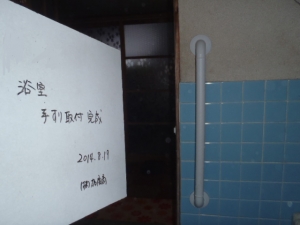 浴室
手すり取付 完成
2014.8.19